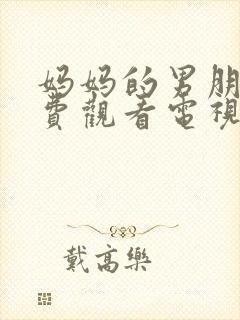 妈妈的男朋
費觀看電視
戴高樂